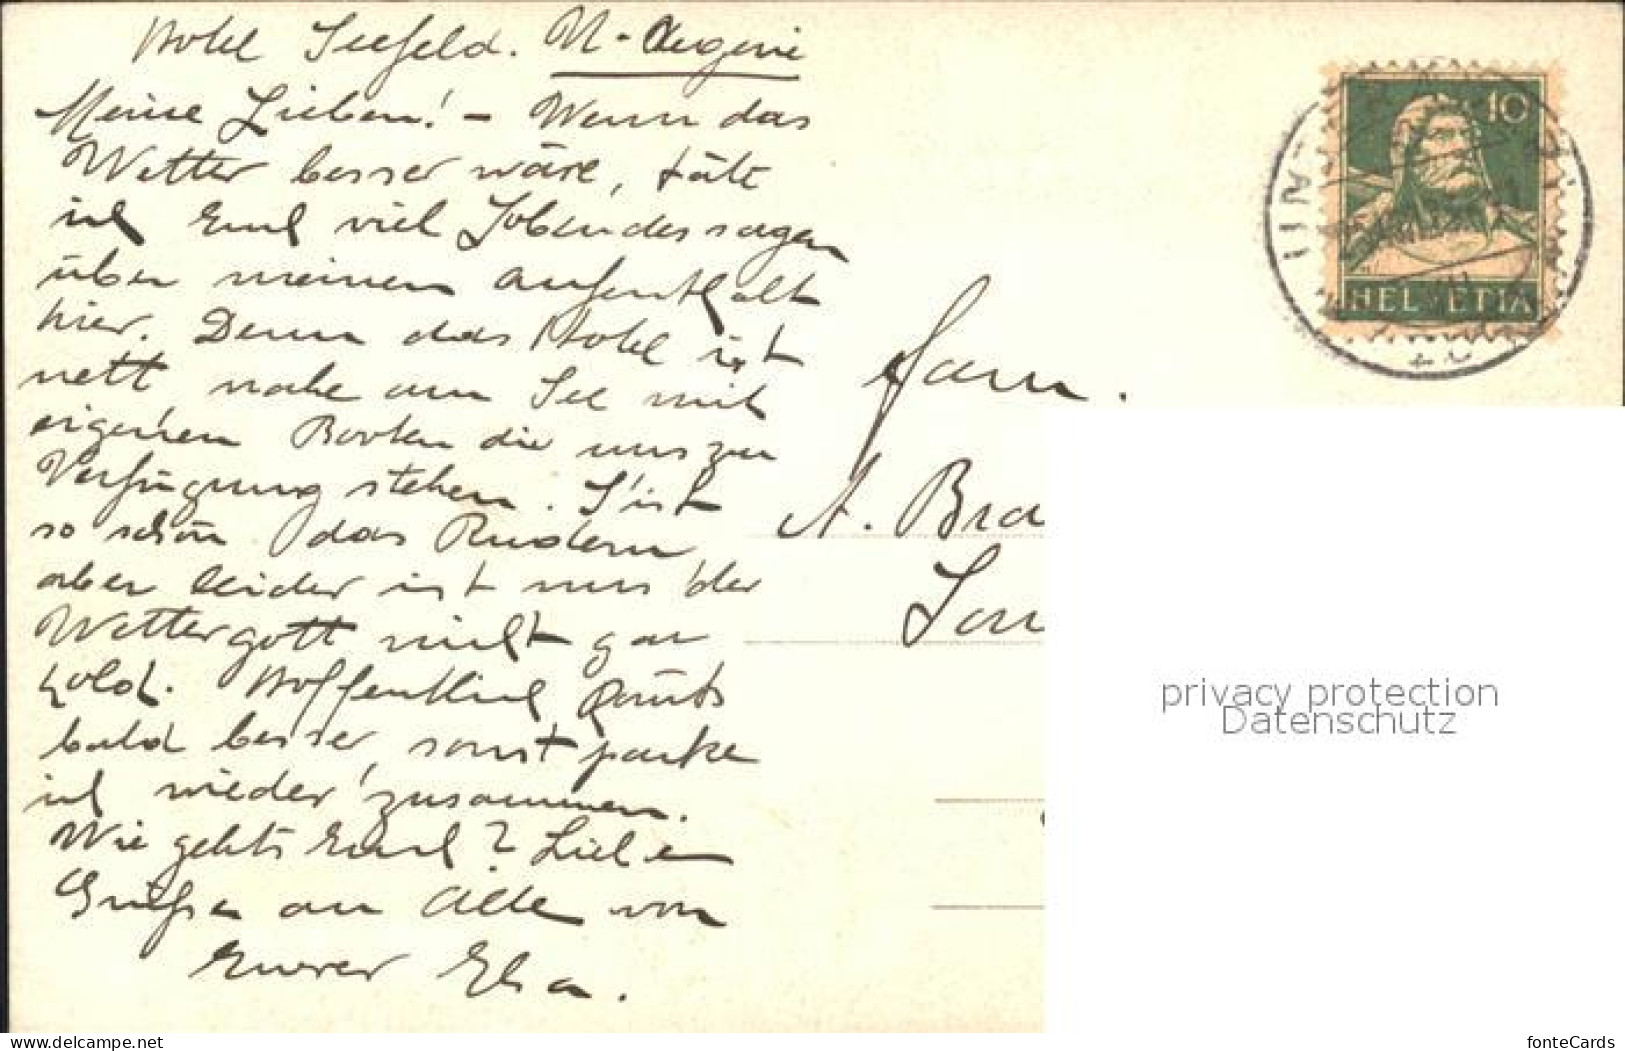 Hotel Seefeld. U-Aegeri
Meine Lieben! - Wenn das
Wetter besser wäre, täte
ich Euch viel Lobendes sagen
über meinen Aufenthalt
hier. Denn das Hotel ist
nett nahe am See mit
eigenen Booten die uns zur
Verfügung stehen. S'ist
so schön das Rudern
aber leider ist uns der
Wettergott nicht gar
hold. Hoffentlich
bald besser, sonst packe
ich wieder zusammen.
Wie gehts Euch? Liebe
Grüsse an Alle von
Eurer Elsa.
Fam.
A. Bra
10
HELVETIA
UNT
privacy protection
Datenschutz
www.delcampe.net
fonteCards